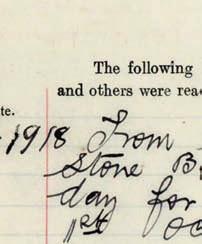 The following
and others were rea
te.
1918 From
Stone B
day for
1st oc